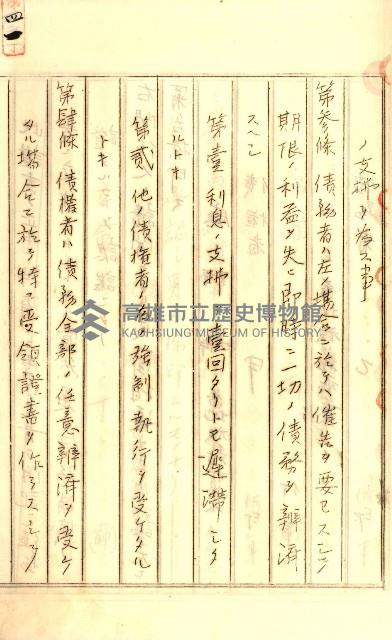 四一
ノ支拂ヲ為ス事
第参條 債務者ハ左ノ場合ニ於テハ催告ヲ要セスシテ
期限ノ利益ヲ失ヒ即時ニ一切ノ債務ヲ辨済
スヘシ
第壹 利息ノ支拂ヲ壹回タリトモ遅滞シタ
ルトキ
第貳 他ノ債権者ノ強制執行ヲ受ケタル
トキ
第肆條 債権者ハ債務全部ノ任意辨済ヲ受ケ
タル場合ニ於テ特ニ受領證書ヲ作ラスシテ
高雄市立歷史博物館
KAOHSIUNG MUSEUM OF HISTORY